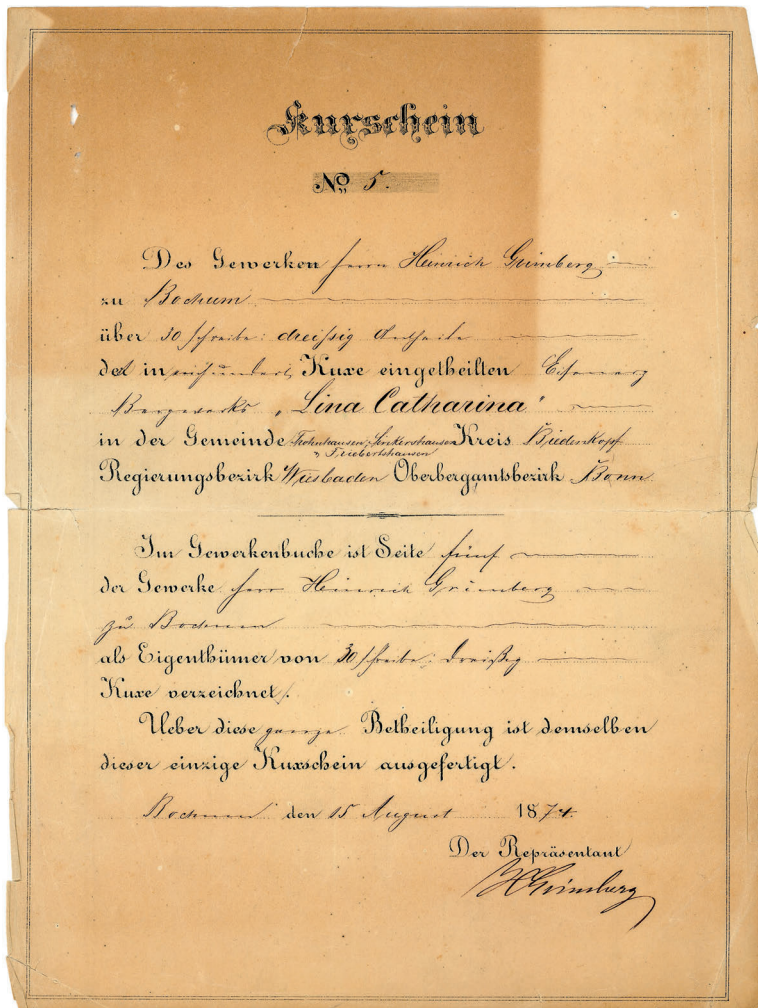 Kuxschein
No 5.
Des Gewerken Herrn Heinrich Grimberg
zu Bochum
über 30 schreibe: dreissig Antheile
des in einhundert Kuxe eingetheilten Eisenerz
Bergwerks „Lina Catharina"
in der Gemeinde Frohnhausen, Sinkershausen Kreis Biedenkopf
u Friebertshausen
Regierungsbezirk Wiesbaden Oberbergamtsbezirk Bonn.
Im Gewerkenbuche ist Seite fünf
der Gewerke Herr Heinrich Grimberg
zu Bochum
als Eigenthümer von 30 schreibe: dreißig
Kuxe verzeichnet.
Ueber diese ganze Betheiligung ist demselben
dieser einzige Kuxschein ausgefertigt.
Bochum den 15 August 1874.
Der Repräsentant
HGrimberg